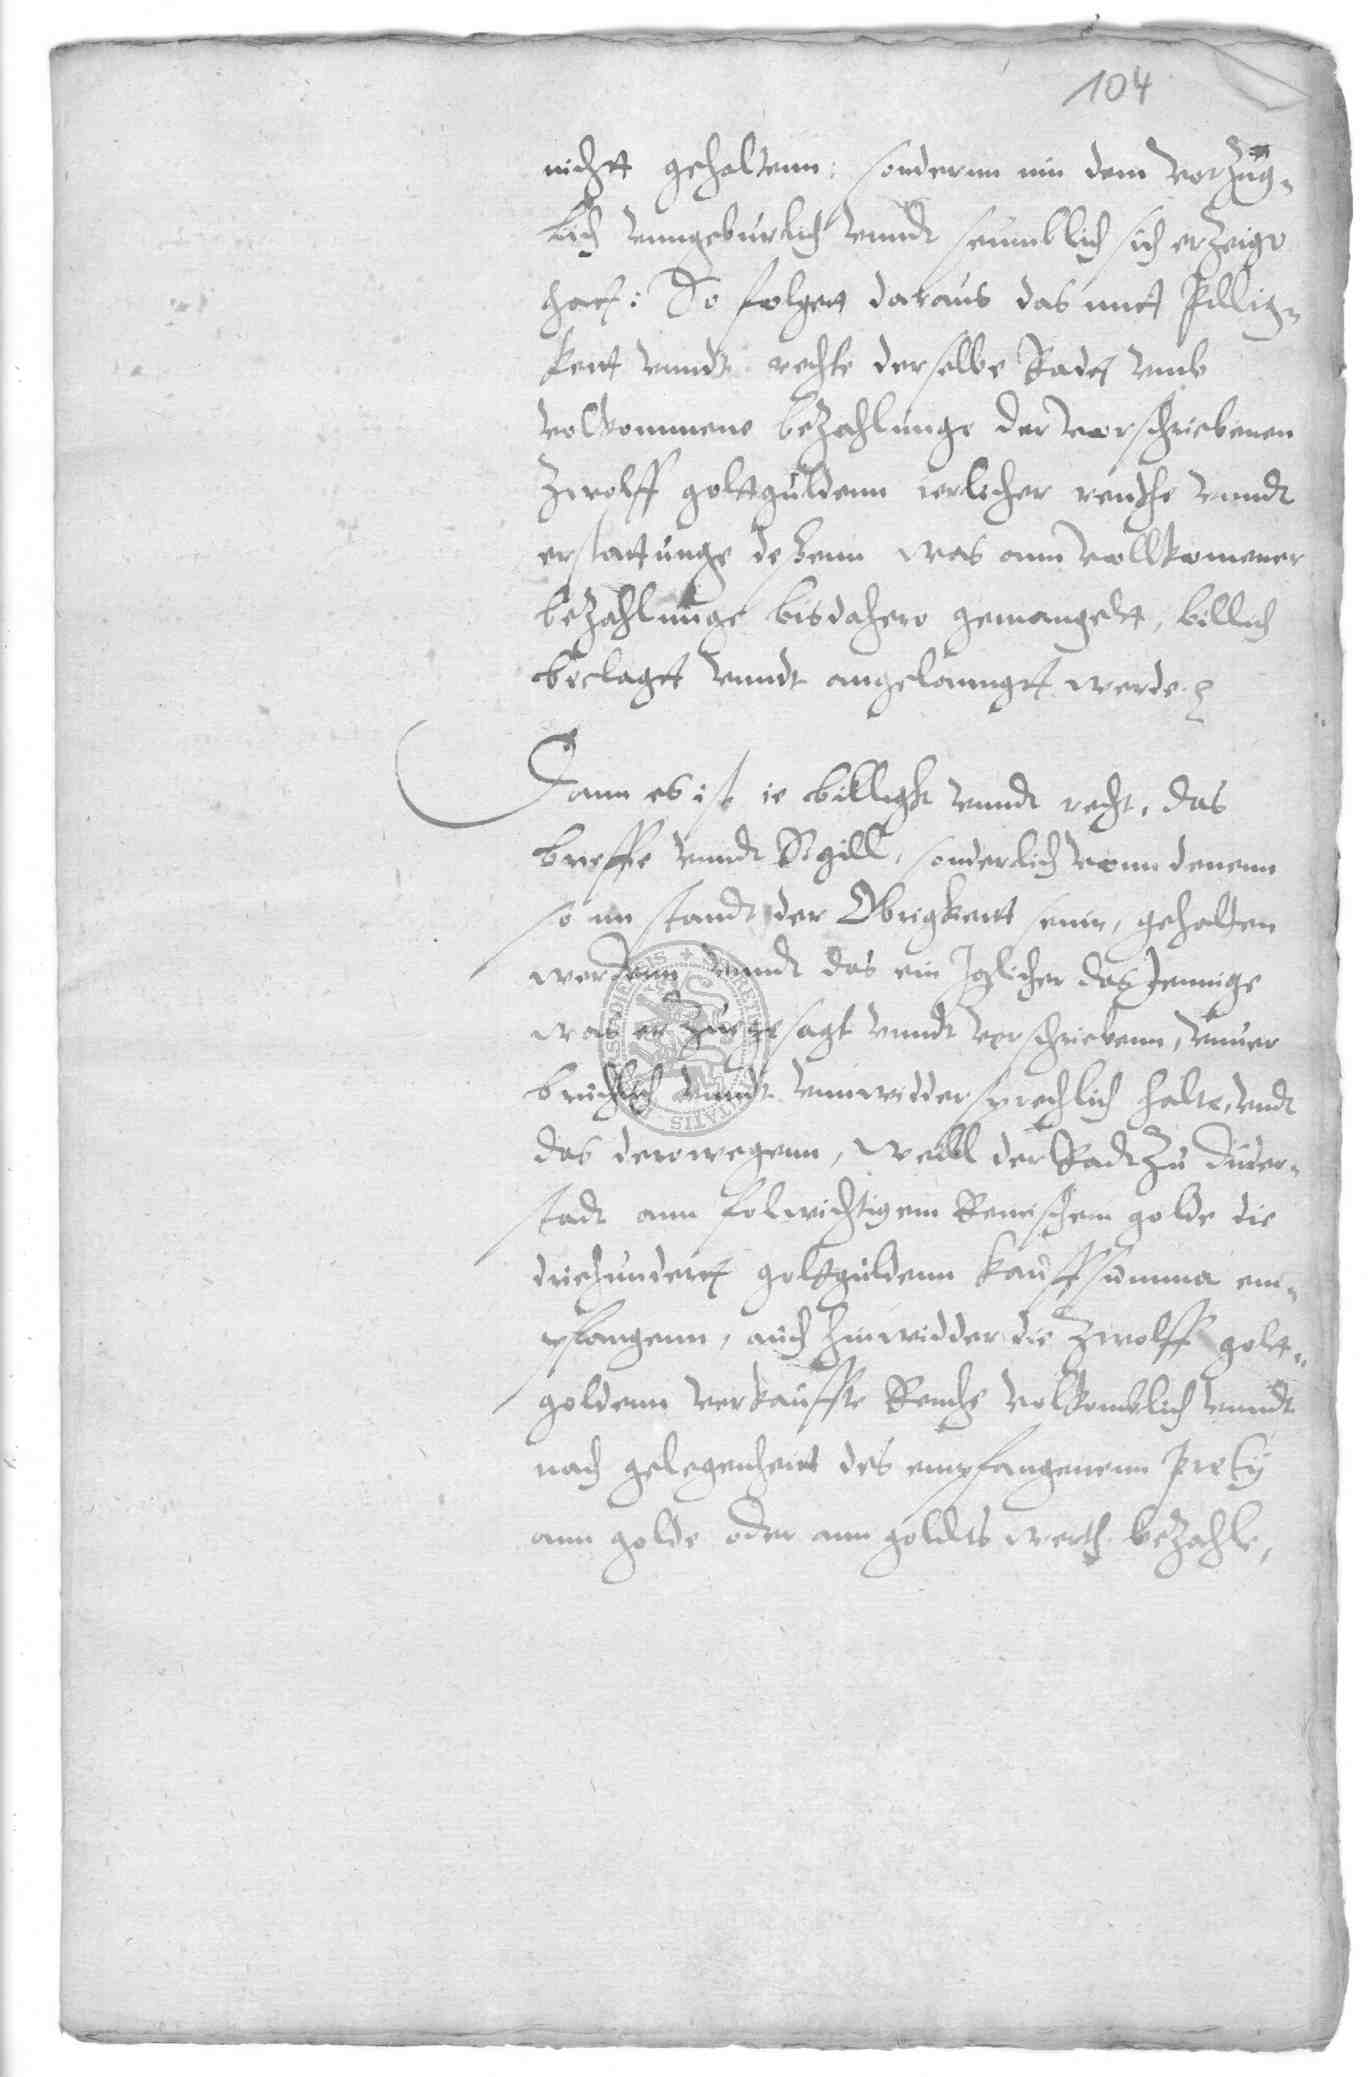 104
nichtt gehaltenn: sondernn inn dem vorzug-
lich vnngeburlich vnndt seumblich sich erzeigt
hatt: So folgett daraus das mitt Pillig-
keitt vnndt rechte derselbe Radtt vmb
volkommene bezahlunge der verschriebenen
Zwolff goltguldenn ierlicher renthe vnndt
erstattunge deßenn was ann vollkomener
bezahlunge bis dahero gemangelt, billich
beclagtt vnndt angelanngtt werde.
Dann es ist ie billigk vnndt recht, das
brieffe vnndt Sigill, sonderlich vonn denenn
so im standt der Obrigkeitt seinn, gehalten
werdenn, vnndt das ein Jglicher das Jennige
was er zugesagt vnndt verschriebenn, vnuer
bruchlich vnndt vnnwiddersprechlich halte, vndt
das derowegenn, weill der Radt zu Duder-
stadt ann folwichtigem Reinischem golde die
driehundertt goltguldenn kauffsumma em-
pfangenn, auch hinwidder die Zwolff golt-
goldenn verkauffte Renthe volkomblich vnndt
nach gelegenheitt des empfangenenn Pretij
ann golde oder ann goldts werth bezahle,